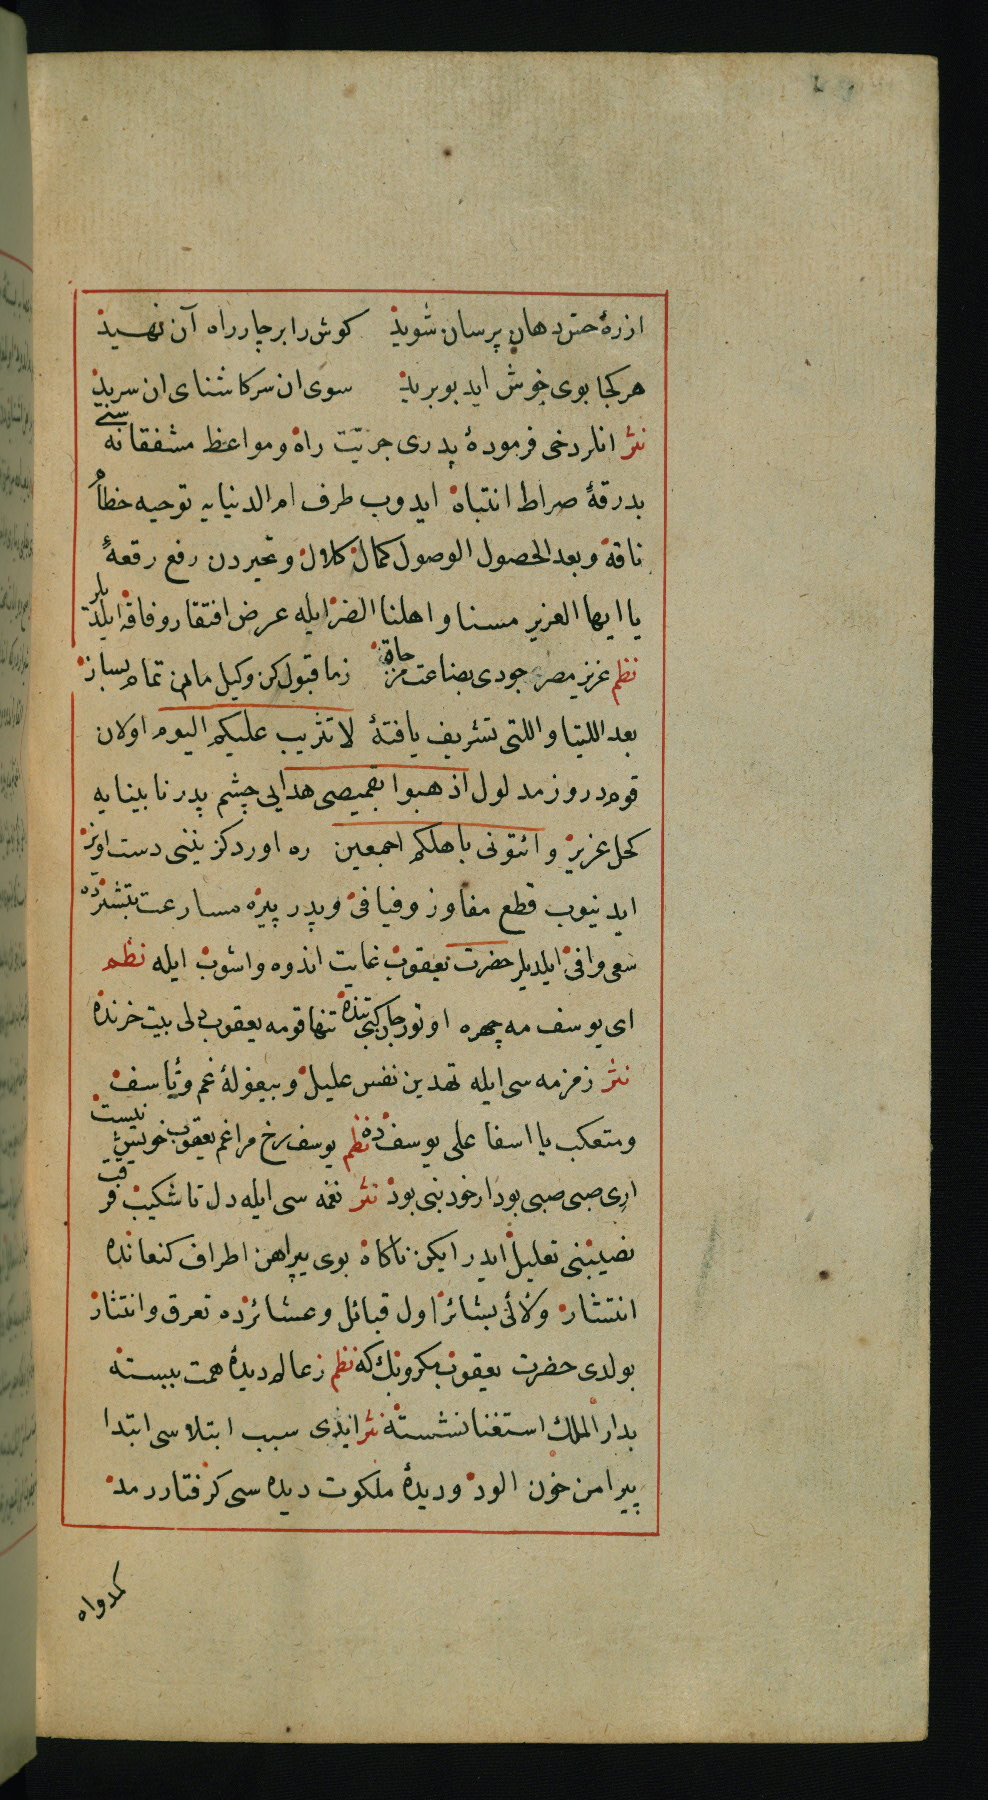 ازرهٔ حس دهان پرسان شوید کوش را بر چار راه آن نهید
هر کجا بوی خوش اید بو برید سوی ان سر کاشنای ان سرید
نثر انلر دخی فرمودهٔ پدری جریّت راه و مواعظ مشفقانه سنی
بدرقهٔ صراط انتباه ایدوب طرف ام الدنیایه توجیه خطاُ
ناقه و بعد الحصول الوصول کمال کلال و تحیردن رفع رقعهٔ
یا ایها العزیز مسنا و اهلنا الضر ایله عرض افتقار و فاقه ایلدیلر
نظم عزیز مصر جودی بضاعت مزجاة زما قبول کن وکیل مامن تمام بساز
بعد اللتیا و اللتی تشریف یافتهٔ لا تثریب علیکم الیوم اولان
قوم دروز مدلول اذهبوا بقمیصی هدایی چشم پدر نابینایه
کحل عزیز و ائتونی باهلکم اجمعین ره اورد کزیننی دست اویز
ایدنیوب قطع مفاوز و فیافی و پدر پیره مسارعت تبشیرده
سعی وافی ایلدیلر حضرت یعقوب غایت اندوه و اشوب ایله نظم
ای یوسف مه چهره اوتور جان کبی تنده تنها قومه یعقوب دلی بیت خزنده
نثر زمزمه سی ایله تهدین نفس علیل و بیغولهٔ غم و تأسف
ومتعکب یا اسفا علی یوسف ده نظم یوسف رخ مراغم یعقوب خویش نیست
اری صبی صبی بود ار خود نبی بود نثر نغمه سی ایله دل ناشکیب فرقت
نصیبنی تعلیل ایدر ایکن ناکاه بوی پیراهن اطراف کنعانده
انتشار و لآلئ بشائر اول قبائل و عشائرده تعرق و انتثار
بولدی حضرت یعقوب بکرونك که نظم زعالم دیدهٔ همت ببسته
بدار الملك استغنا نشسته نثر ایدی سبب ابتلاسی ابتدا
پیرامن خون الود و دیدهٔ ملکوت دیده سی کرفتار رمد
کمدواه